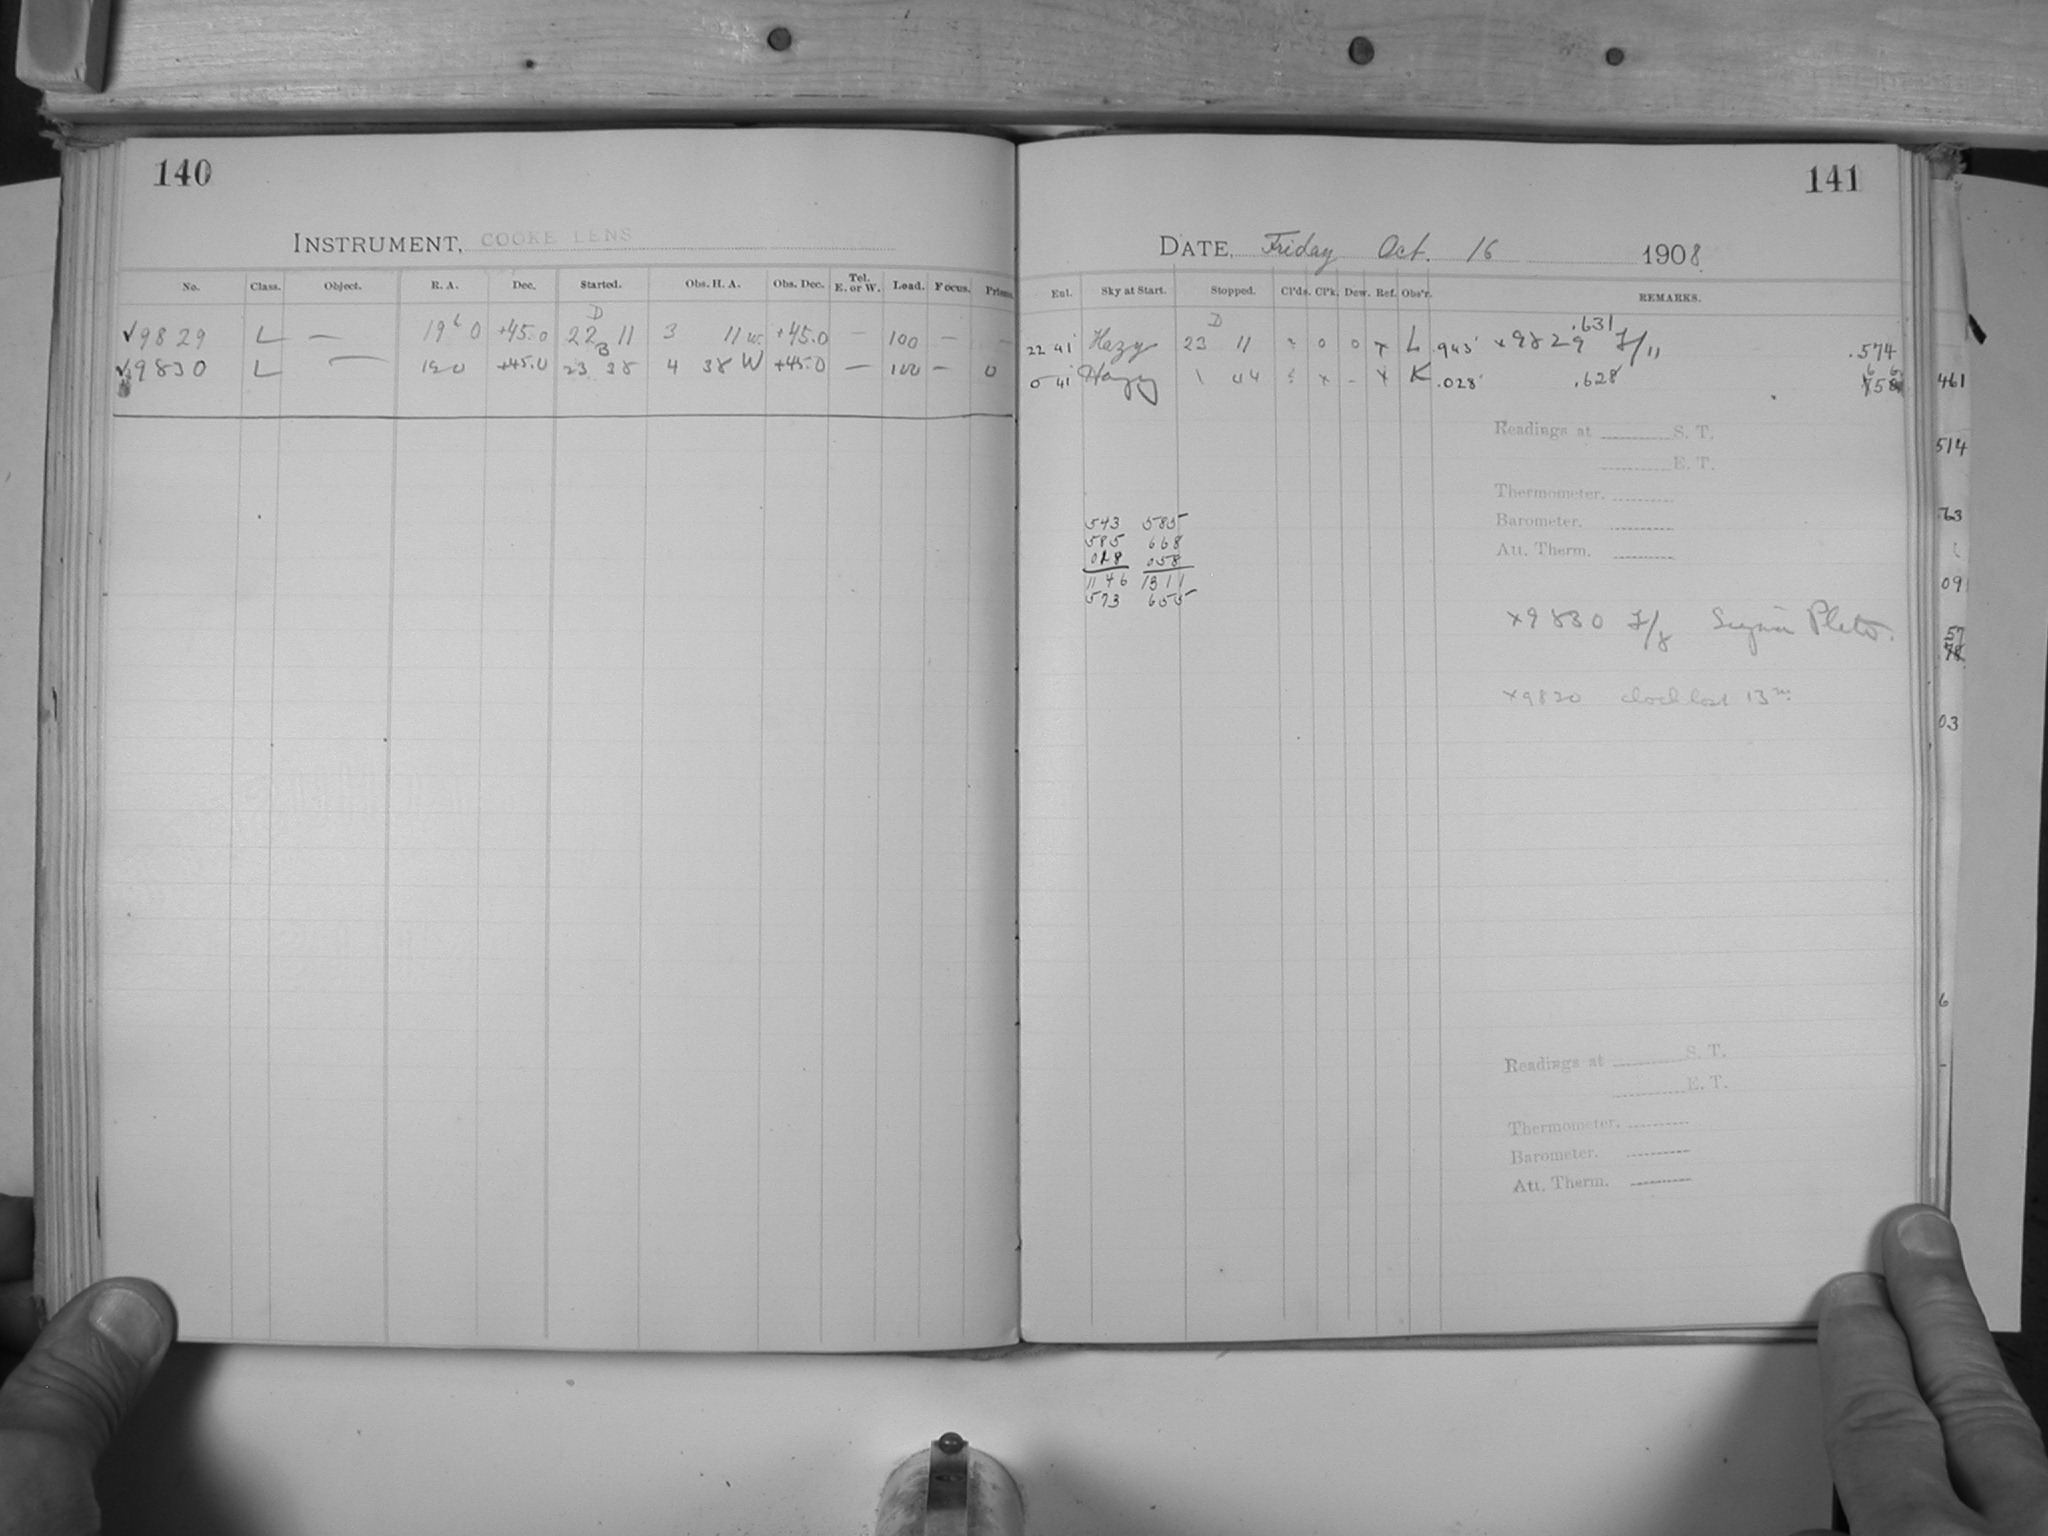 140
141
INSTRUMENT, COOKE LENS
DATE, Friday Oct. 16 1908
No. Class. Object. R. A. Dec. Started. Obs. H. A. Obs. Dec. Tel. E. or W. Load. Focus. Prisms.
Ent. Sky at Start. Stopped. Cl'ds. Cl'k. Dew. Ref. Obs'r. REMARKS.
√9829 L — 19 0 +45.0 22 D 11 3 11 w. +45.0 — 100 — —
22 41 Hazy 23 D 11 0 0 x L .943 x9829 .631 f/11 .574
√9830 L — 19 0 +45.0 23 B 38 4 38 W +45.0 — 100 — 0
0 41 Hazy 1 44 x - x K .028 .628
461
Readings at S. T.
E. T.
514
Thermometer.
Barometer.
Att. Therm.
63
543 585
585 668
018 058
1146 1311
573 655
09
x9830 f/8
57
78
x9830 clock lost 13 m.
03
6
Readings at S. T.
E. T.
Thermometer.
Barometer.
Att. Therm.